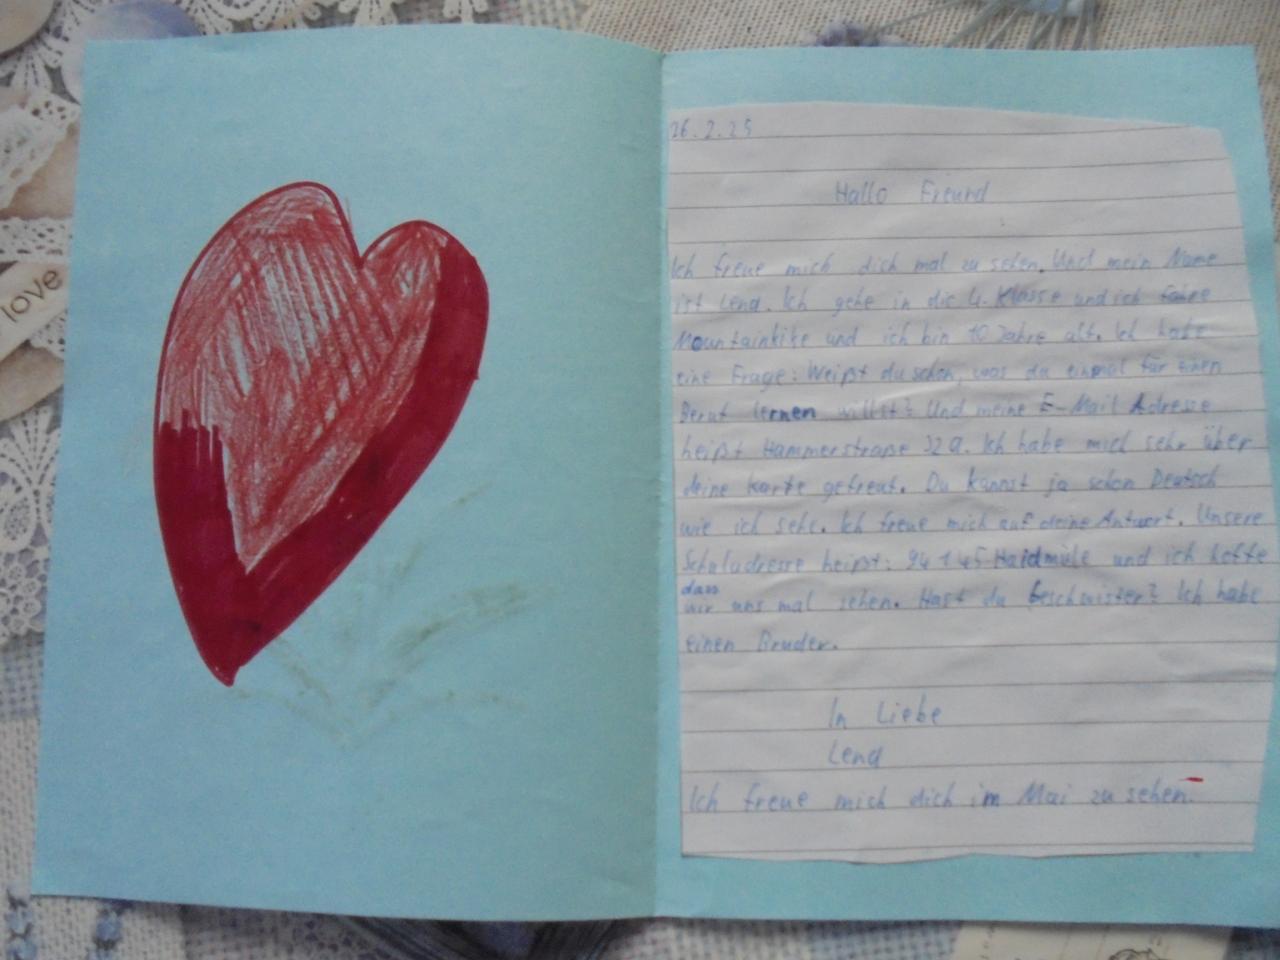 love
26.2.25
Hallo Freund
Ich freue mich dich mal zu sehen. Und mein Name
ist Lena. Ich gehe in die 4. Klasse und ich fahre
Mountainkike und ich bin 10 Jahre alt. Ich habe
eine Frage: Weißt du schon, was du einmal für einen
Beruf lernen willst? Und meine E-Mail Adresse
heißt Hammerstraße 32a. Ich habe mich sehr über
deine Karte gefreut. Du kannst ja schon Deutsch
wie ich sehe. Ich freue mich auf deine Antwort. Unsere
Schuladresse heißt: 94145 Haidmüle und ich hoffe
dass
wir uns mal sehen. Hast du Geschwister? Ich habe
einen Bruder.
In Liebe
Lena
Ich freue mich dich im Mai zu sehen.